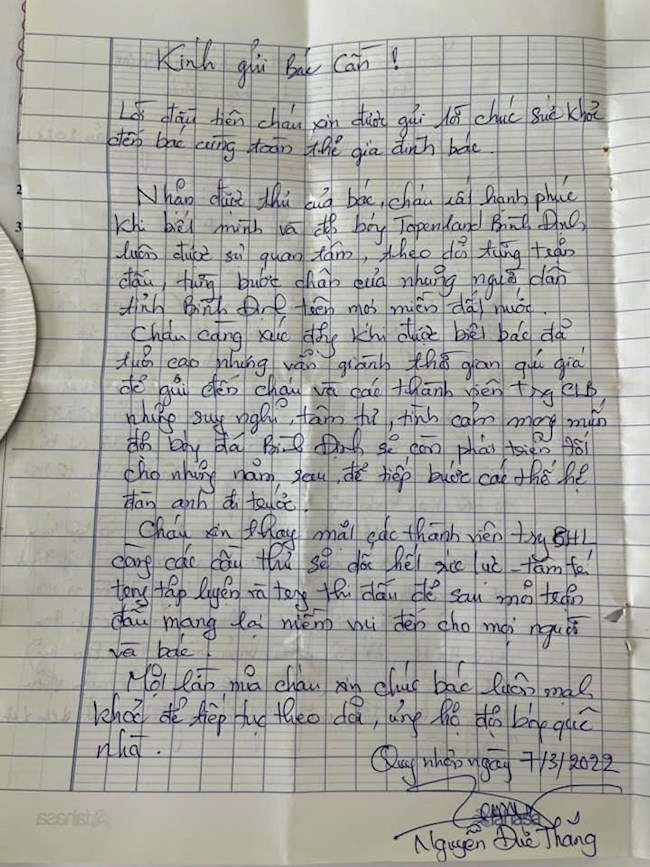 Kính gửi Bác Cần !
Lời đầu tiên cháu xin được gửi lời chúc sức khoẻ
đến bác cùng toàn thể gia đình bác.
Nhận được thư của bác, cháu rất hạnh phúc
khi biết mình và đội bóng Topenland Bình Định
luôn được sự quan tâm, theo dõi từng trận
đấu, từng bước chân của những người dân
tỉnh Bình Định trên mọi miền đất nước.
Cháu càng xúc động khi được biết bác đã
tuổi cao nhưng vẫn giành thời gian quí giá
để gửi đến cháu và các thành viên trong CLB
những suy nghĩ, tâm tư, tình cảm mong muốn
đội bóng đá Bình Định sẽ còn phát triển tốt
cho những năm sau, để tiếp bước các thế hệ
đàn anh đi trước.
Cháu xin thay mặt các thành viên trong BHL
cùng các cầu thủ sẽ dốc hết sức lực - tâm trí
trong tập luyện và trong thi đấu để sau mỗi trận
đấu mang lại niềm vui đến cho mọi người
và bác.
Một lần nữa cháu xin chúc bác luôn mạnh
khoẻ để tiếp tục theo dõi, ủng hộ đội bóng quê
nhà.
Quy nhơn ngày 7/3/2022
Nguyễn Đức Thắng
tahasa